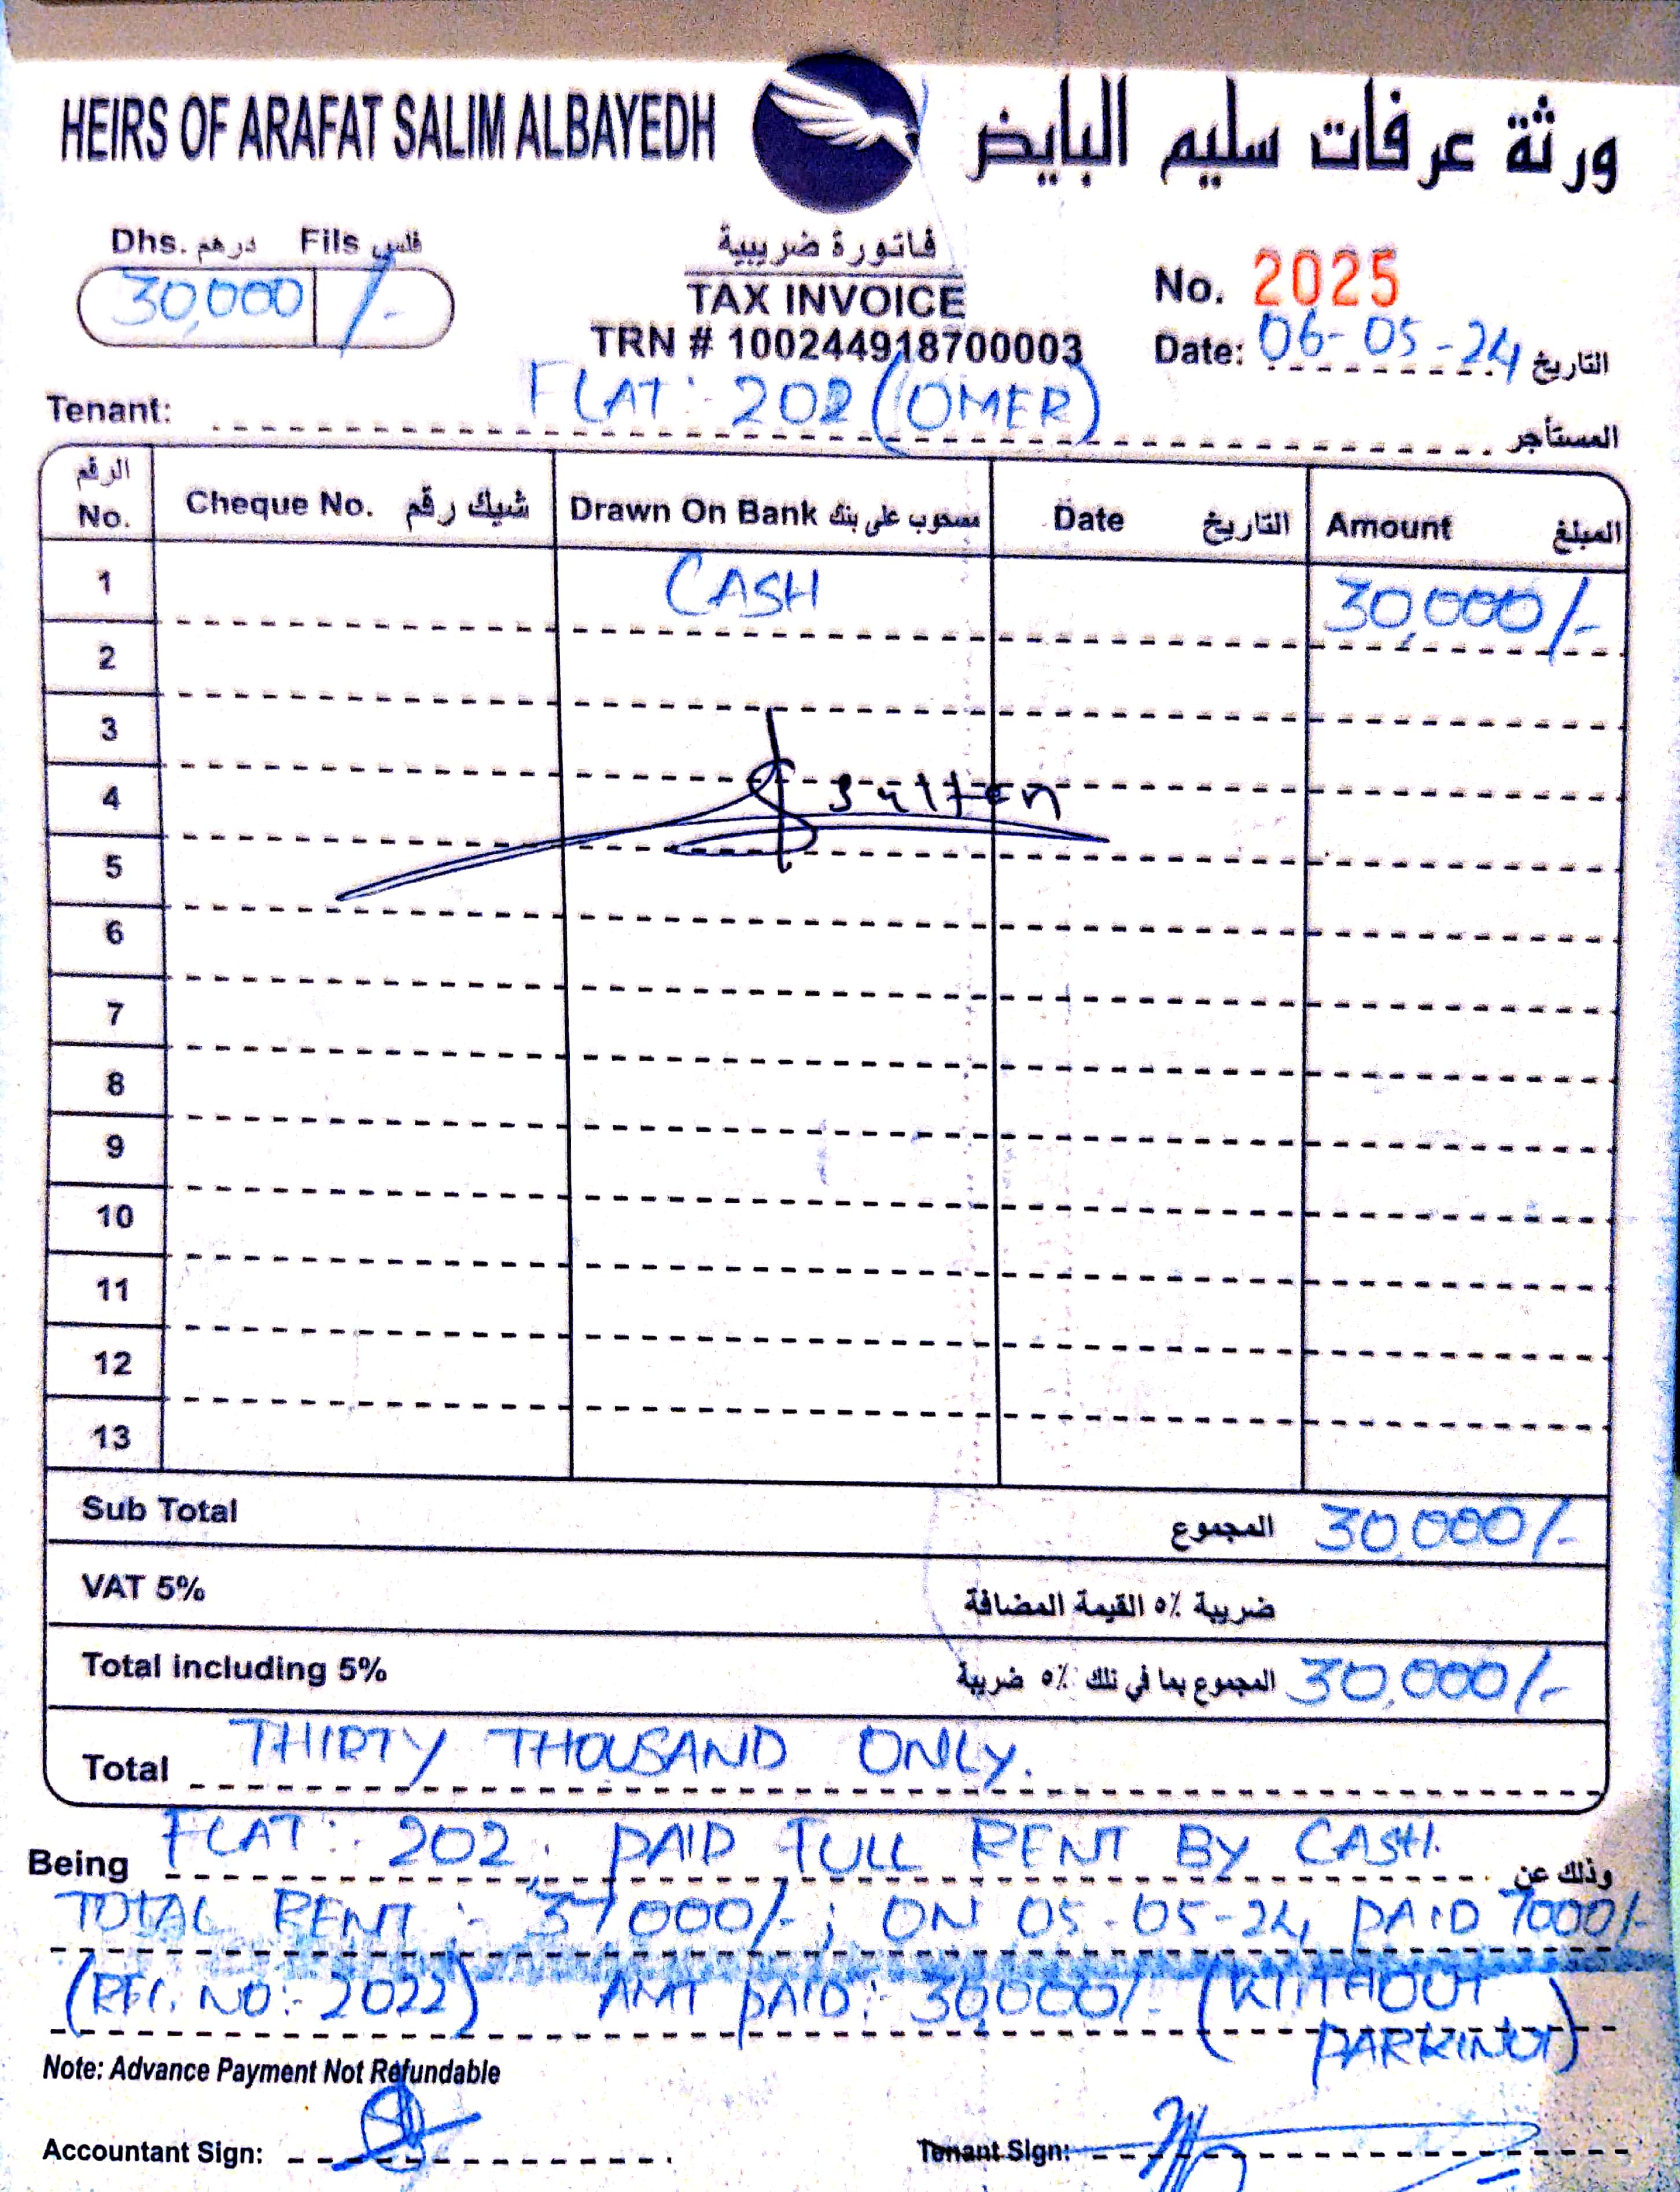 HEIRS OF ARAFAT SALIM ALBAYEDH
ورثة عرفات سليم البايض
Dhs. درهم Fils فلس
30,000 /-
فاتورة ضريبية
TAX INVOICE
TRN # 100244918700003
No. 2025
Date: 06-05-24 التاريخ
Tenant: FLAT: 202 (OMER) المستأجر
الرقم No. Cheque No. شيك رقم Drawn On Bank مسحوب على بنك Date التاريخ Amount المبلغ
1 CASH 30,000/-
2
3
4
5
6
7
8
9
10
11
12
13
Sub Total المجموع 30,000/-
VAT 5% ضريبة ٥٪ القيمة المضافة
Total including 5% المجموع بما في ذلك ٥٪ ضريبة 30,000/-
Total THIRTY THOUSAND ONLY.
Being FLAT: 202, PAID FULL RENT BY CASH. وذلك عن
TOTAL RENT :- 37000/-; ON 05-05-24, PAID 7000/-
(REC. NO:- 2022) AMT PAID:- 30,000/- (WITHOUT
PARKING)
Note: Advance Payment Not Refundable
Accountant Sign: Tenant Sign: